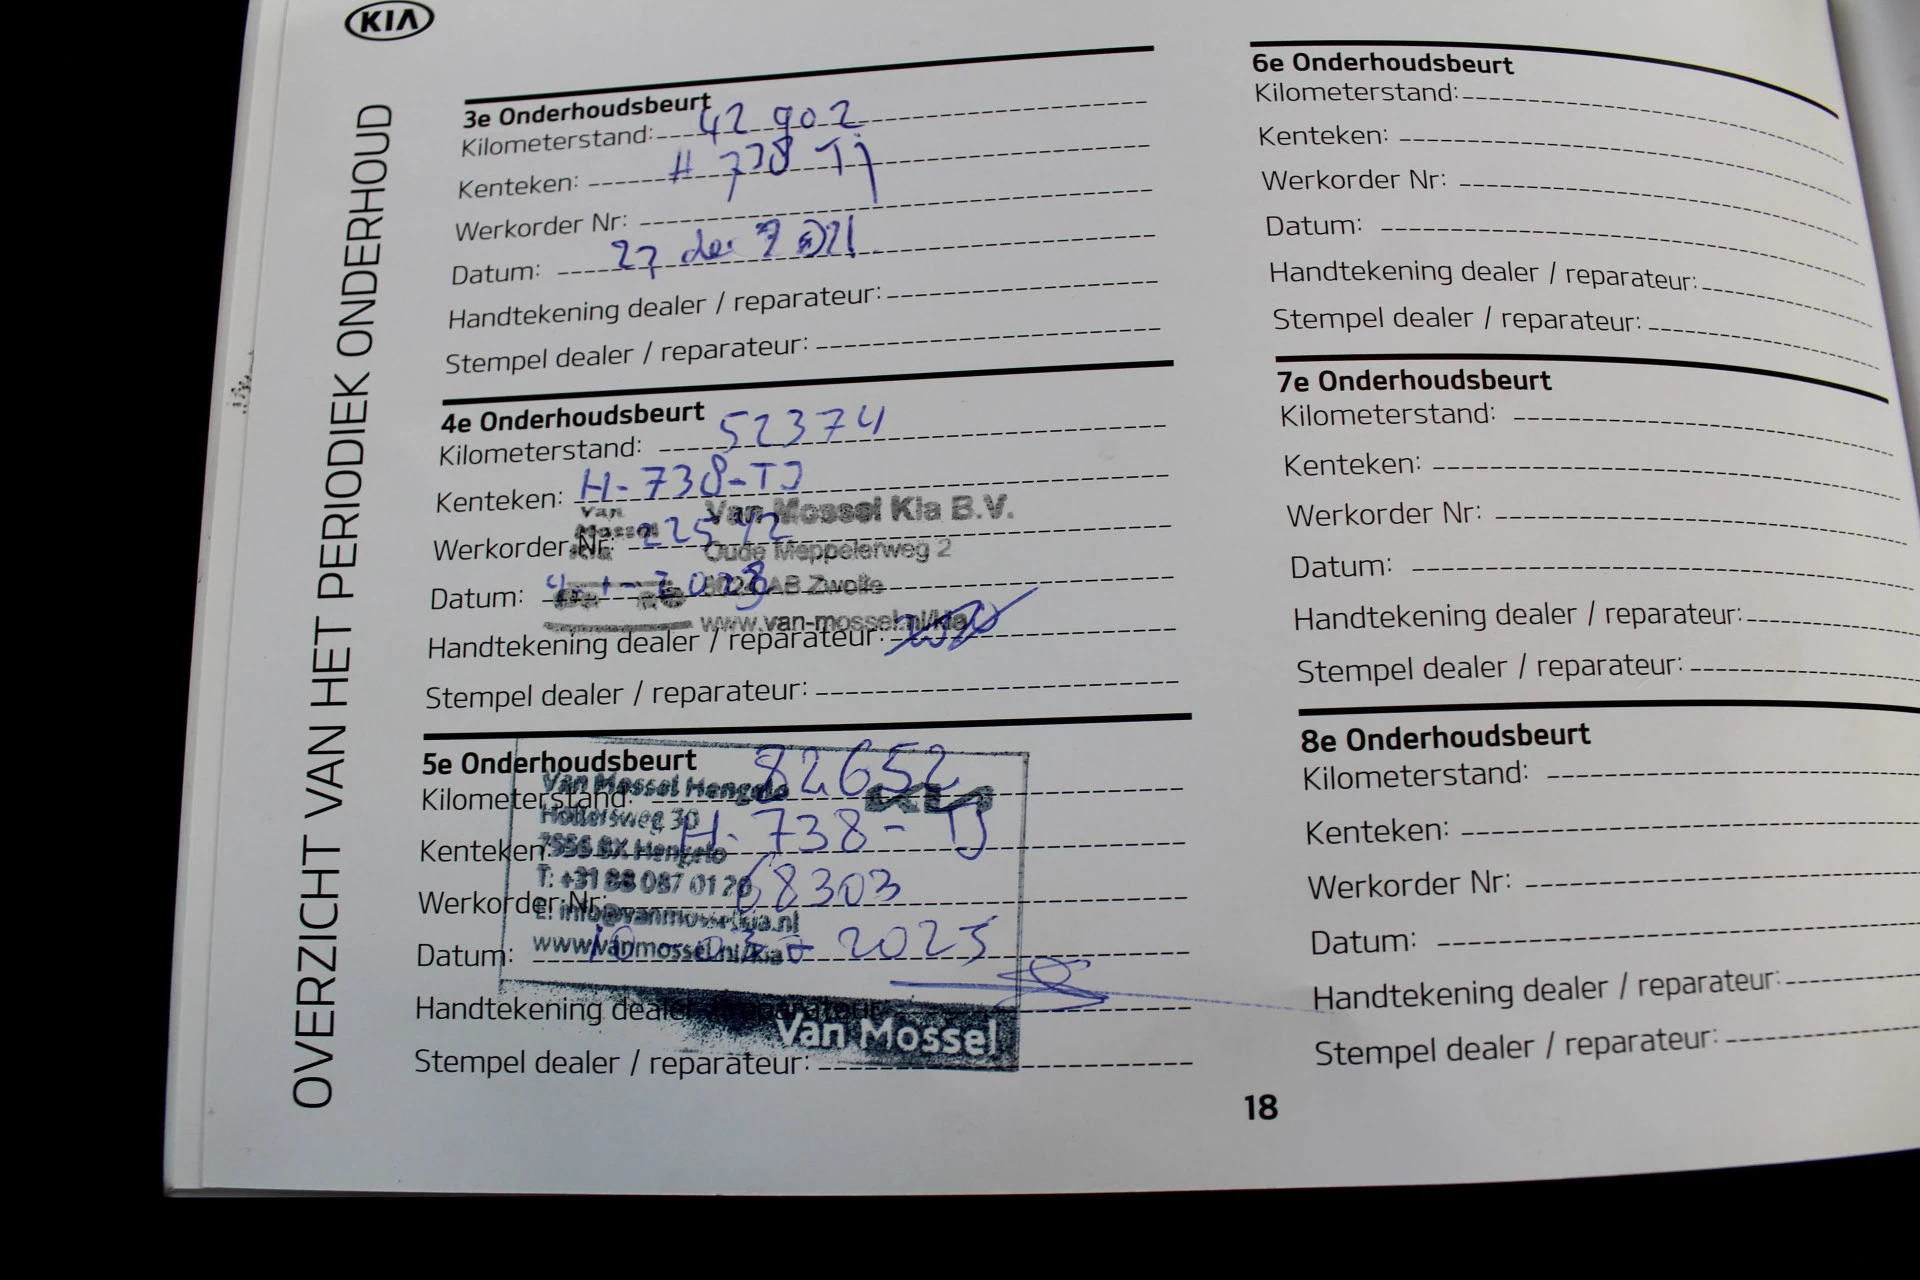 KIA
OVERZICHT VAN HET PERIODIEK ONDERHOUD
3e Onderhoudsbeurt
Kilometerstand: 42 902
Kenteken: H 738 Tj
Werkorder Nr:
Datum: 27 dec 2021
Handtekening dealer / reparateur:
Stempel dealer / reparateur:
4e Onderhoudsbeurt
Kilometerstand: 52374
Kenteken: H-738-TJ
Van Mossel Kia B.V.
Werkorder Nr: 22542
Oude Meppelerweg 2
Datum: 4-1-2023
AB Zwolle
www.van-mossel.nl/kia
Handtekening dealer / reparateur:
Stempel dealer / reparateur:
5e Onderhoudsbeurt
Kilometerstand: 82652
Van Mossel Hengelo
Kenteken: H-738-TJ
7556 BX Hengelo
T: +31 88 087 01 20
Werkorder Nr: 68303
E: info@vanmosselkia.nl
Datum: 10-03-2025
www.vanmossel.nl/kia
Handtekening dealer / reparateur:
Van Mossel
Stempel dealer / reparateur:
6e Onderhoudsbeurt
Kilometerstand:
Kenteken:
Werkorder Nr:
Datum:
Handtekening dealer / reparateur:
Stempel dealer / reparateur:
7e Onderhoudsbeurt
Kilometerstand:
Kenteken:
Werkorder Nr:
Datum:
Handtekening dealer / reparateur:
Stempel dealer / reparateur:
8e Onderhoudsbeurt
Kilometerstand:
Kenteken:
Werkorder Nr:
Datum:
Handtekening dealer / reparateur:
Stempel dealer / reparateur:
18